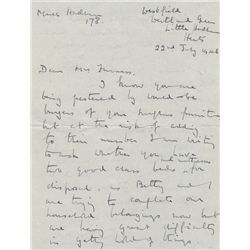 Much Hadham
178.
Westfield
Westland Green
Little Hadham
Herts
22nd July 1946
Dear Mrs Furness,
I know you are
being pestered by would-be
buyers of your surplus furniture
but at the risk of adding
to their number I am writing
to ask whether you have
two good class beds for
disposal, as Betty and I
are trying to complete our
household belongings now but
are having great difficulty
in getting hold of things.